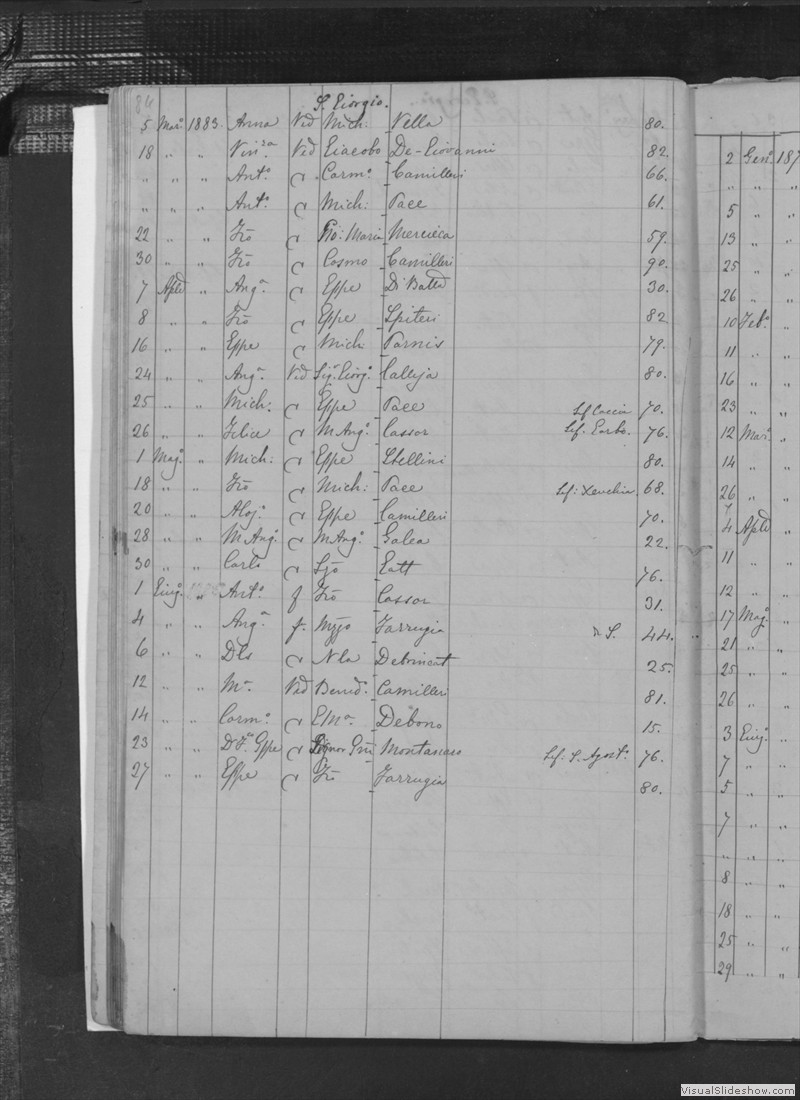 84
S. Giorgio.
5 Mar: 1883. Anna Ved Mich: Vella 80.
18 " " Vin:za Ved Giacobo De-Giovanni 82.
" " " Ant:a C Carm:o Camilleri 66.
" " " Ant:o C Mich: Pace 61.
22 " " Frõ C Gio: Maria Mercieca 59.
30 " " Frõ C Cosmo Camilleri 90.
7 Aple " Ang:a C Gppe Di Batta 30.
8 " " Frõ C Gppe Spiteri 82
16 " " Gppe C Mich: Parnis 79.
24 " " Ang:a Ved Sig: Giorg:o Calleja 80.
25 " " Mich: C Gppe Pace Sf Caccia 70.
26 " " Felice C M Ang:o Cassar Sf: Garbo. 76.
1 Mag:o " Mich: C Gppe Stellini 80.
18 " " Frõ C Mich: Pace Sf: Xeuchia 68.
20 " " Aloj: C Gppe Camilleri 70.
28 " " M Ang: C M Ang:o Galea 22.
30 " " Carlo C Gatt 76.
1 Giug:o " Ant:o f Frõ Cassar 31.
4 " " Ang:a f. Farrugia S. 44.
6 " " C Nla Debrincat 25.
12 " " M:a Ved Bened:o Camilleri 81.
14 " " Carm:o C Debono 15.
23 " " Gppe C Montanaro Sf: S. Agost:o 76.
27 " " Gppe C Frõ Farrugia 80.
2 Gen:o 187
" " "
5 " "
13 " "
25 " "
26 " "
10 Feb:o "
11 " "
16 " "
23 " "
12 Mar: "
14 " "
26 " "
4 Aple "
11 " "
12 " "
17 Mag:o "
21 " "
25 " "
26 " "
3 Giug: "
7 " "
5 " "
7 " "
" " "
8 " "
18 " "
25 " "
29 " "
VisualSlideshow.com